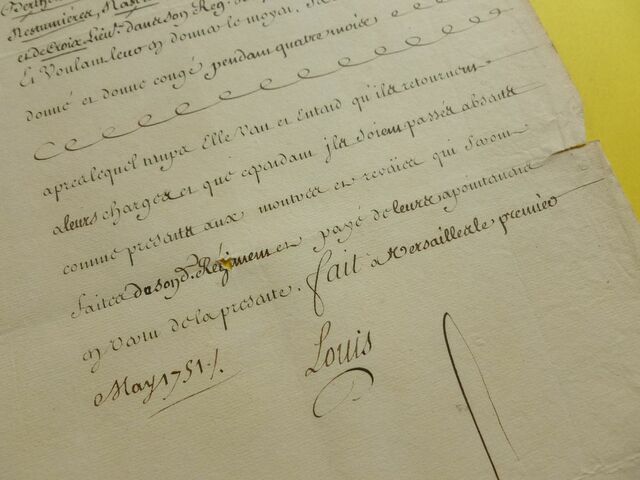 et de Croix Lieut. dans son Reg.
Et Voulant leur en donner le moyen, Sa
donné et donne congé pendant quatre mois
apres lequel temps Elle Veut et Entend qu'ils retournent
a leurs charges et que cependant ils soient passés absents
comme presents aux montres et reveües qui seront
faites de son d. Régiment et payé de leurs apointemens
en vertu de la presente. fait a Versailles le premier
May 1751./.
Louis